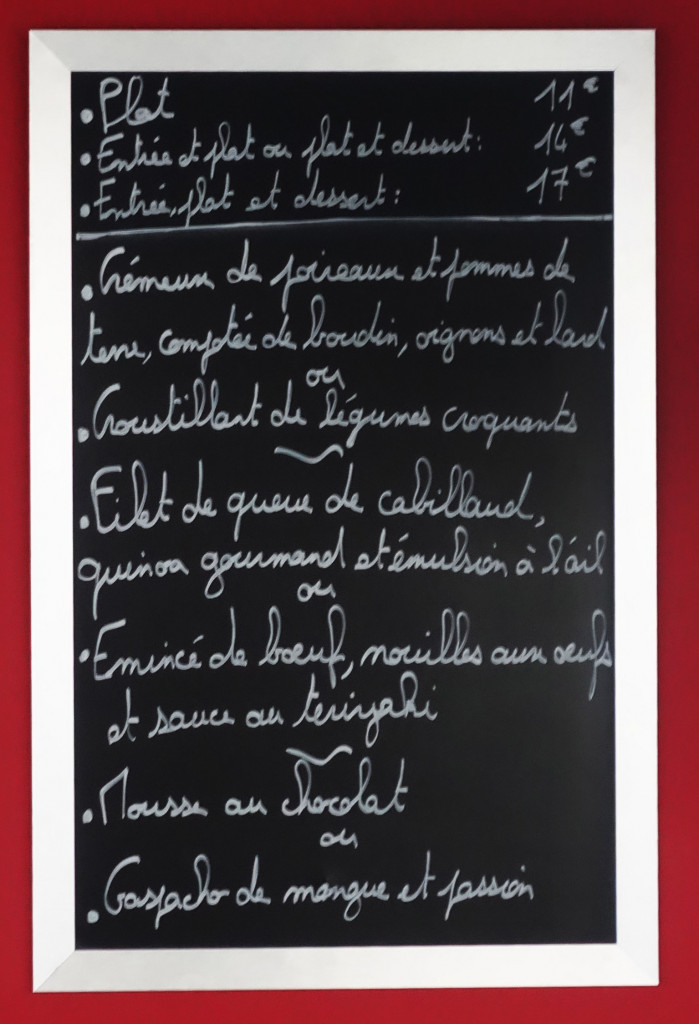 • Plat 11€
• Entrée et plat ou plat et dessert: 14€
• Entrée, plat et dessert: 17€
• Crémeux de poireaux et pommes de
terre, comptée de boudin, oignons et lard
ou
• Croustillant de légumes croquants
~
• Filet de queue de cabillaud,
quinoa gourmand et émulsion à l'ail
ou
• Emincé de bœuf, nouilles aux œufs
et sauce au teriyaki
~
• Mousse au chocolat
ou
• Gaspacho de mangue et passion